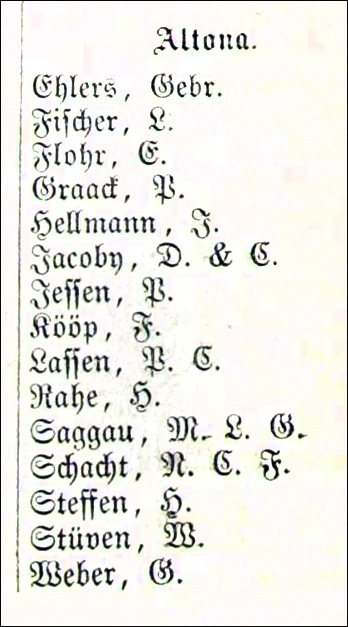 Altona.
Ehlers, Gebr.
Fiſcher, L.
Flohr, E.
Graack, P.
Hellmann, J.
Jacoby, D. & C.
Jeſſen, P.
Kööp, F.
Laſſen, P. C.
Rahe, H.
Saggau, M. L. G.
Schacht, N. C. F.
Steffen, H.
Stüven, W.
Weber, G.